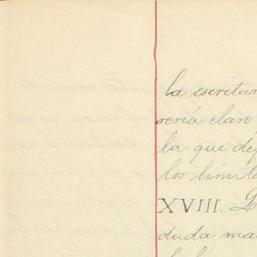 la escritur
rería claro
la que de
los límite
XVIII.
duda ma